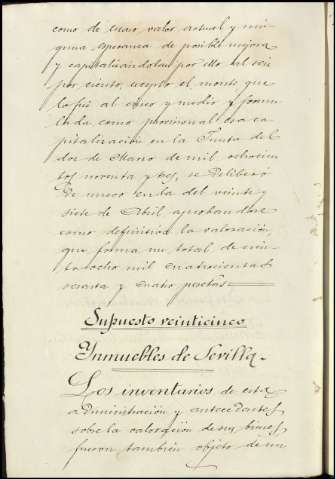 como de escaso valor actual y nin-
guna esperanza de posible mejora
y capitalizándolas por ello al seis
por ciento, excepto el monte que
lo fué al cinco y medio y formu-
lada como provisional esa ca-
pitalización en la Junta del
dos de Marzo de mil ochocien-
tos noventa y tres, se deliberó
de nuevo en la del veinte y
siete de Abril, aprobándose
como definitiva la valoración,
que forma un total de cien-
to ocho mil cuatrocientas
sesenta y cuatro pesetas
Supuesto veinticinco
Inmuebles de Sevilla.
Los inventarios de esta
administración y antecedentes
sobre la valoración de sus bienes
fueron también objeto de un